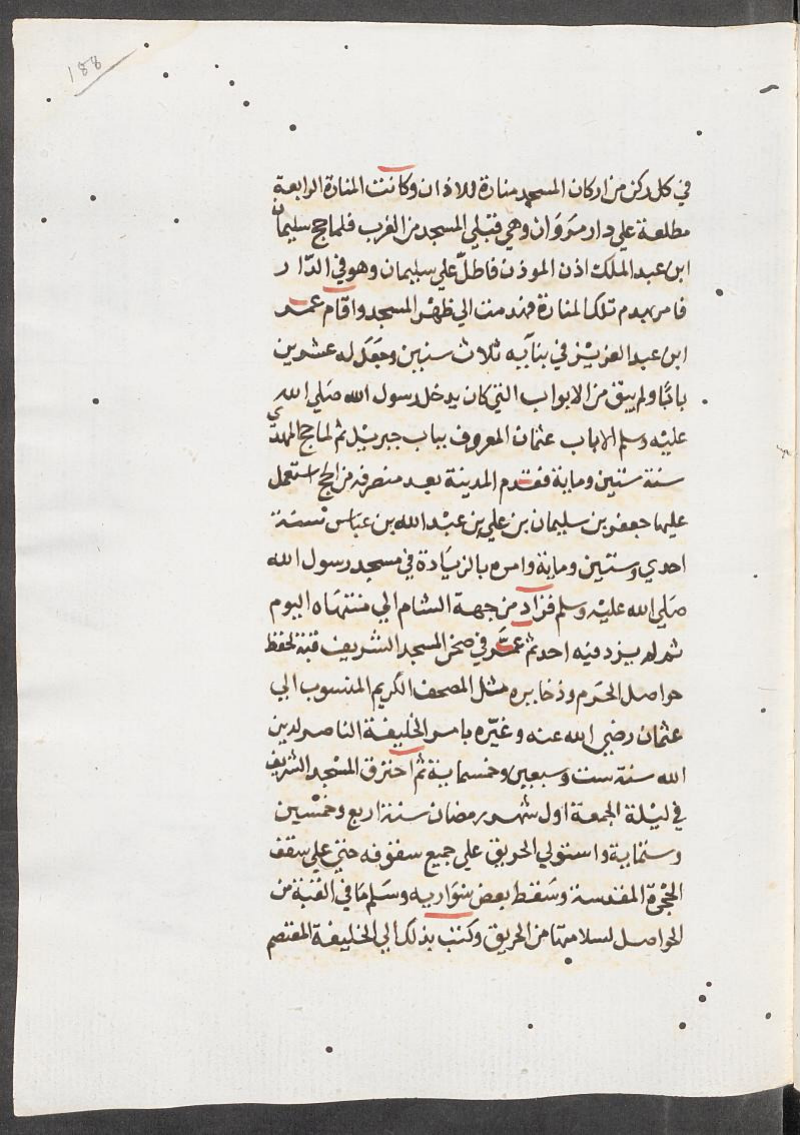 188
في كل ركن من اركان المسجد منارة للاذان وكانت المنارة الرابعة
مطلعة علي دار مروان وهي قبلي المسجد من الغرب فلما حج سليمان
ابن عبد الملك اذن الموذن فاطل علي سليمان وهو في الدار
فامر بهدم تلك المنارة فهدمت الي ظهر المسجد واقام عمر
ابن عبد العزيز في بنايه ثلاث سنين وجعل له عشرين
بابا ولم يبق من الابواب التي كان يدخل رسول الله صلي الله
عليه وسلم الا باب عثمان المعروف بباب جبريل ثم لما حج المهدي
سنة ستين وماية فقدم المدينة بعد منصرفه من الحج استعمل
عليها جعفر بن سليمان بن علي بن عبد الله بن عباس سنة
احدي وستين وماية وامره بالزيادة في مسجد رسول الله
صلي الله عليه وسلم فزاد من جهة الشام الي منتهاه اليوم
ثم لم يزد فيه احد ثم عمر في صحن المسجد الشريف قبة لحفظ
حواصل الحرم وذخايره مثل المصحف الكريم المنسوب الي
عثمان رضي الله عنه وغيره بامر الخليفة الناصر لدين
الله سنة ست وسبعين وخمسماية ثم احترق المسجد الشريف
في ليلة الجمعة اول شهر رمضان سنة اربع وخمسين
وستماية واستولي الحريق علي جميع سقوفه حتي علي سقف
الحجرة المقدسة وسقط بعض سواريه وسلم ما في القبة من
الحواصل لسلامتها من الحريق وكتب بذلك الي الخليفة المعتصم